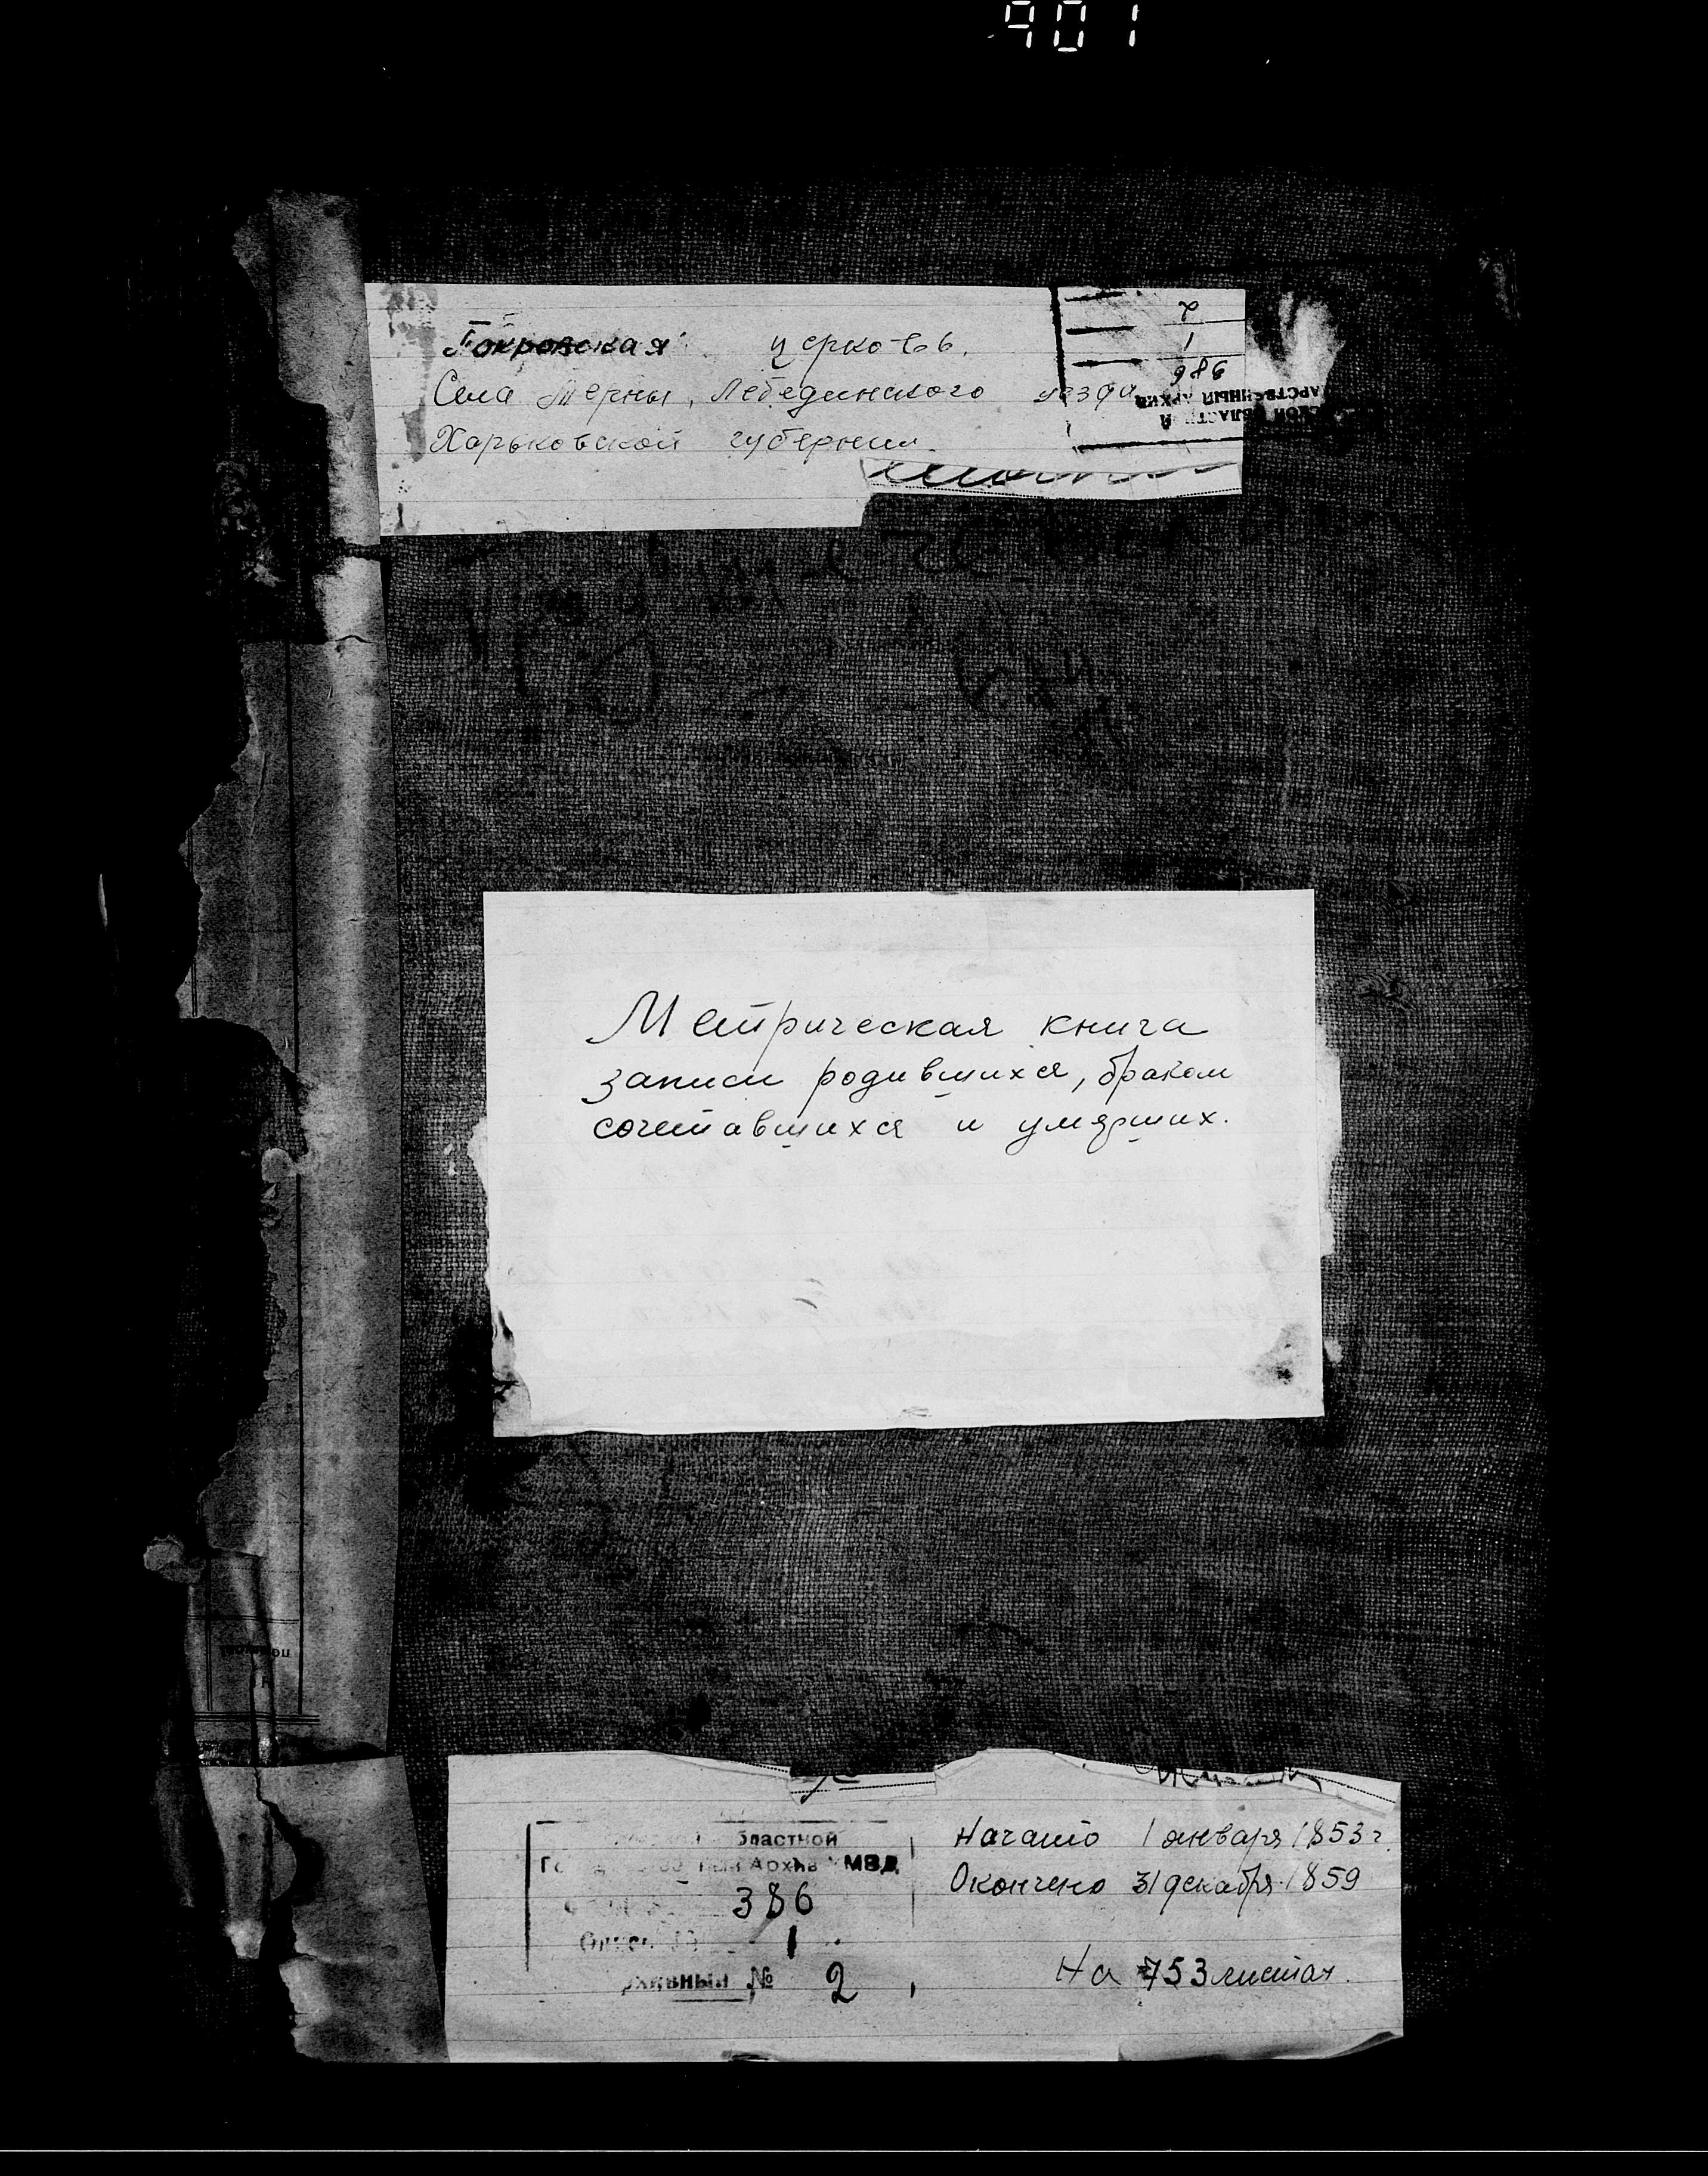 901
Покровская церковь.
Села Терны, Лебединского уезда
Харьковской губернии.
2
1
386
Метрическая книга
записи родившихся, браком
сочетавшихся и умярших.
областной
Архив МВД
386
1
№ 2
Начато 1 января 1853 г.
Окончено 31 декабря 1859
На 753 листах.